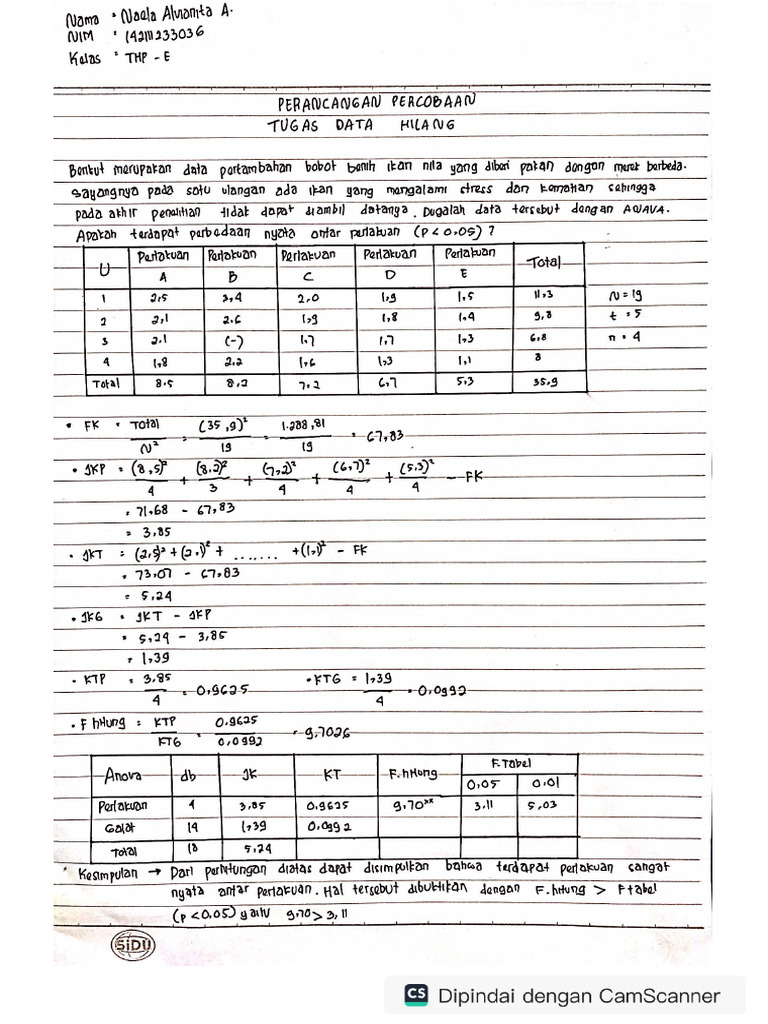 Nama : Naela Alvianita A.
NIM : 142111233036
Kelas : THP - E
PERANCANGAN PERCOBAAN
TUGAS DATA HILANG
Berikut merupakan data pertambahan bobot benih ikan nila yang diberi pakan dengan merek berbeda.
Sayangnya pada satu ulangan ada ikan yang mengalami stress dan kematian sehingga
pada akhir penelitian tidak dapat diambil datanya. Dugalah data tersebut dengan ANAVA.
Apakah terdapat perbedaan nyata antar perlakuan (P < 0.05) ?
U Perlakuan A Perlakuan B Perlakuan C Perlakuan D Perlakuan E Total
1 2,5 3,4 2,0 1,9 1,5 11,3 N = 19
2 2,1 2.6 1,9 1,8 1.4 9,8 t = 5
3 2.1 (-) 1,7 1,7 1,3 6,8 n = 4
4 1,8 2.2 1,6 1,3 1,1 8
Total 8.5 8,2 7,2 6,7 5,3 35,9
• FK = Total / N² = (35,9)² / 19 = 1.288,81 / 19 = 67,83
• JKP = (8,5)² / 4 + (8,2)² / 3 + (7,2)² / 4 + (6,7)² / 4 + (5,3)² / 4 - FK
= 71,68 - 67,83
= 3,85
• JKT = (2,5)² + (2,1)² + ....... + (1,1)² - FK
= 73,07 - 67,83
= 5,24
• JKG = JKT - JKP
= 5,24 - 3,85
= 1,39
• KTP = 3,85 / 4 = 0,9625 • KTG = 1,39 / 4 = 0,0992
• F hitung = KTP / KTG = 0.9625 / 0,0992 = 9,7026
Anova db JK KT F.hitung F.Tabel
0,05 0,01
Perlakuan 4 3,85 0,9625 9,70** 3.11 5,03
Galat 14 1,39 0,0992
Total 18 5,24
• Kesimpulan → Dari perhitungan diatas dapat disimpulkan bahwa terdapat perlakuan sangat
nyata antar perlakuan. Hal tersebut dibuktikan dengan F.hitung > F tabel
(P < 0,05) yaitu 9,70 > 3,11
SiDU
CS Dipindai dengan CamScanner